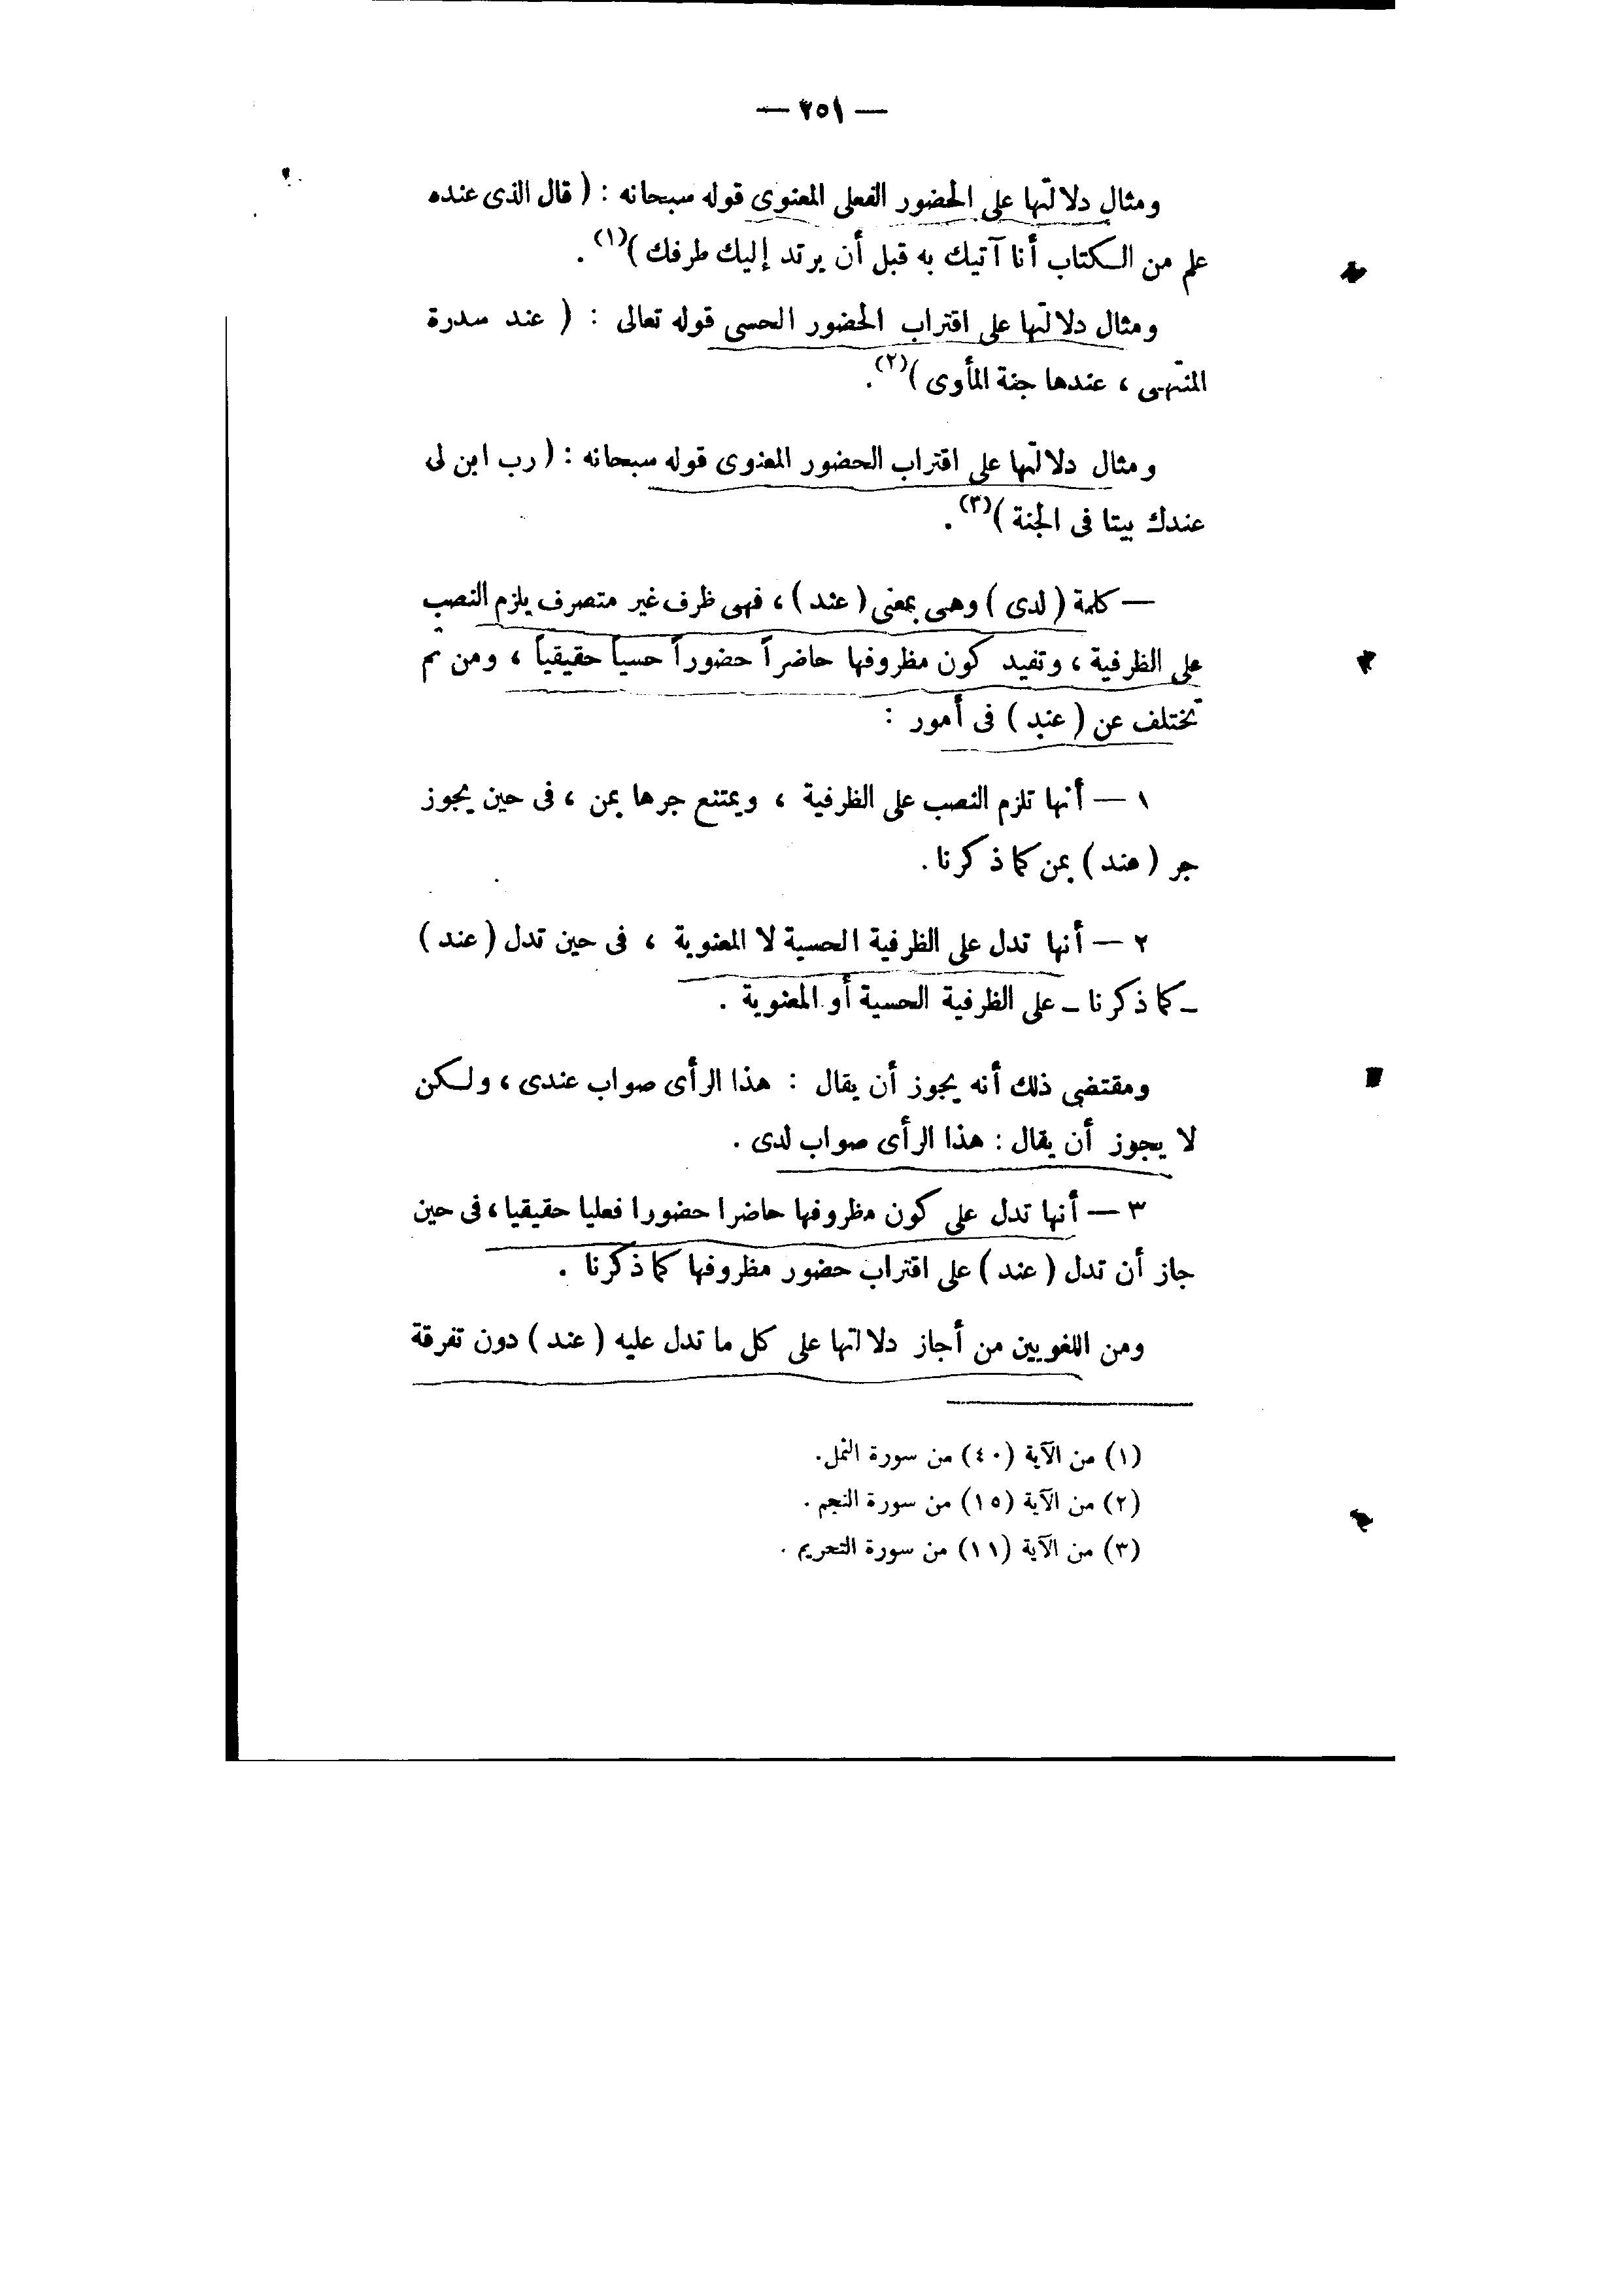 — ٢٥١ —
ومثال دلالتها على الحضور الفعلى المعنوى قوله سبحانه : ( قال الذى عنده
علم من الكتاب أنا آتيك به قبل أن يرتد إليك طرفك )(١) .
ومثال دلالتها على اقتراب الحضور الحسى قوله تعالى : ( عند سدرة
المنتهى ، عندها جنة المأوى )(٢).
ومثال دلالتها على اقتراب الحضور المعنوى قوله سبحانه : ( رب ابن لى
عندك بيتا فى الجنة )(٣).
— كلمة ( لدى ) وهى بمعنى ( عند ) ، فهى ظرف غير متصرف يلزم النصب
على الظرفية ، وتفيد كون مظروفها حاضراً حضوراً حسياً حقيقياً ، ومن ثم
تختلف عن ( عند ) فى أمور :
١ — أنها تلزم النصب على الظرفية ، ويمتنع جرها بمن ، فى حين يجوز
جر ( عند ) بمن كما ذكرنا .
٢ — أنها تدل على الظرفية الحسية لا المعنوية ، فى حين تدل ( عند )
ـ كما ذكرنا ـ على الظرفية الحسية أو المعنوية .
ومقتضى ذلك أنه يجوز أن يقال : هذا الرأى صواب عندى ، ولكن
لا يجوز أن يقال : هذا الرأى صواب لدى .
٣ — أنها تدل على كون مظروفها حاضرا حضورا فعليا حقيقيا ، فى حين
جاز أن تدل ( عند ) على اقتراب حضور مظروفها كما ذكرنا .
ومن اللغويين من أجاز دلالتها على كل ما تدل عليه ( عند ) دون تفرقة
(١) من الآية (٤٠) من سورة النمل.
(٢) من الآية (١٥) من سورة النجم .
(٣) من الآية (١١) من سورة التحريم .